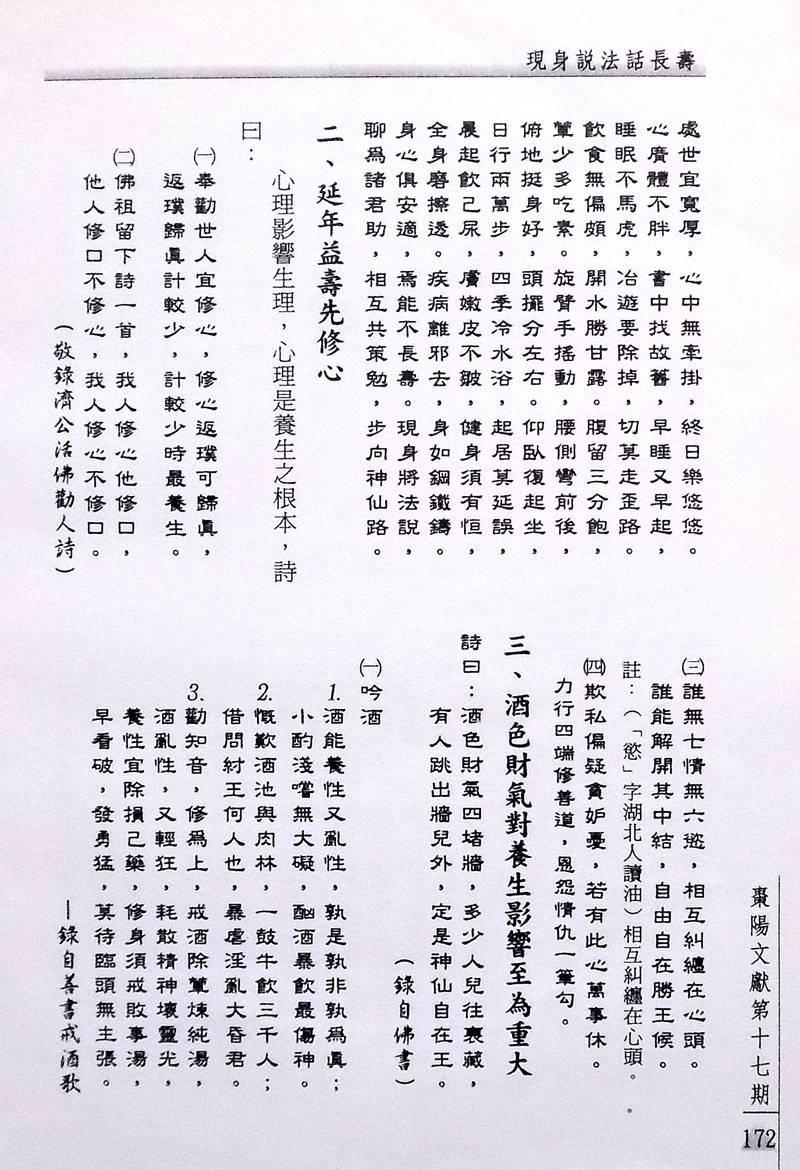 現身説法話長壽
處世宜寬厚，心中無牽掛，終日樂悠悠。
心廣體不胖，書中找故舊，早睡又早起，
睡眠不馬虎，冶遊要除掉，切莫走歪路。
飲食無偏頗，開水勝甘露。腹留三分飽，
葷少多吃素。旋臂手搖動，腰側彎前後，
俯地挺身好，頭擺分左右。仰臥復起坐，
日行兩萬步，四季冷水浴，起居莫延誤，
晨起飲己尿，膚嫩皮不皺，健身須有恒，
全身磨擦透。疾病離邪去，身如鋼鐵鑄。
身心俱安適，焉能不長壽。現身將法說，
聊為諸君助，相互共策勉，步向神仙路。
二、延年益壽先修心
心理影響生理，心理是養生之根本，詩
曰：
㈠奉勸世人宜修心，修心返璞可歸眞，
返璞歸眞計較少，計較少時最養生。
㈡佛祖留下詩一首，我人修心他修口，
他人修口不修心，我人修心不修口。
（敬錄濟公活佛勸人詩）
㈢誰無七情無六慾，相互糾纏在心頭。
誰能解開其中結，自由自在勝王侯。
註：（「慾」字湖北人讀油）相互糾纏在心頭。
㈣欺私偏疑貪妒憂，若有此心萬事休。
力行四端修善道，恩怨情仇一筆勾。
三、酒色財氣對養生影響至為重大
詩曰：酒色財氣四堵牆，多少人兒往裏藏，
有人跳出牆兒外，定是神仙自在王。
（錄自佛書）
㈠吟酒
1.酒能養性又亂性，孰是孰非孰為眞；
小酌淺嚐無大礙，酗酒暴飲最傷神。
2.慨歎酒池與肉林，一鼓牛飲三千人；
借問紂王何人也，暴虐淫亂大昏君。
3.勸知音，修為上，戒酒除葷煉純湯，
酒亂性，又輕狂，耗散精神壞靈光，
養性宜除損己藥，修身須戒敗事湯，
早看破，發勇猛，莫待臨頭無主張。
—錄自善書戒酒歌
棗陽文獻第十七期
172